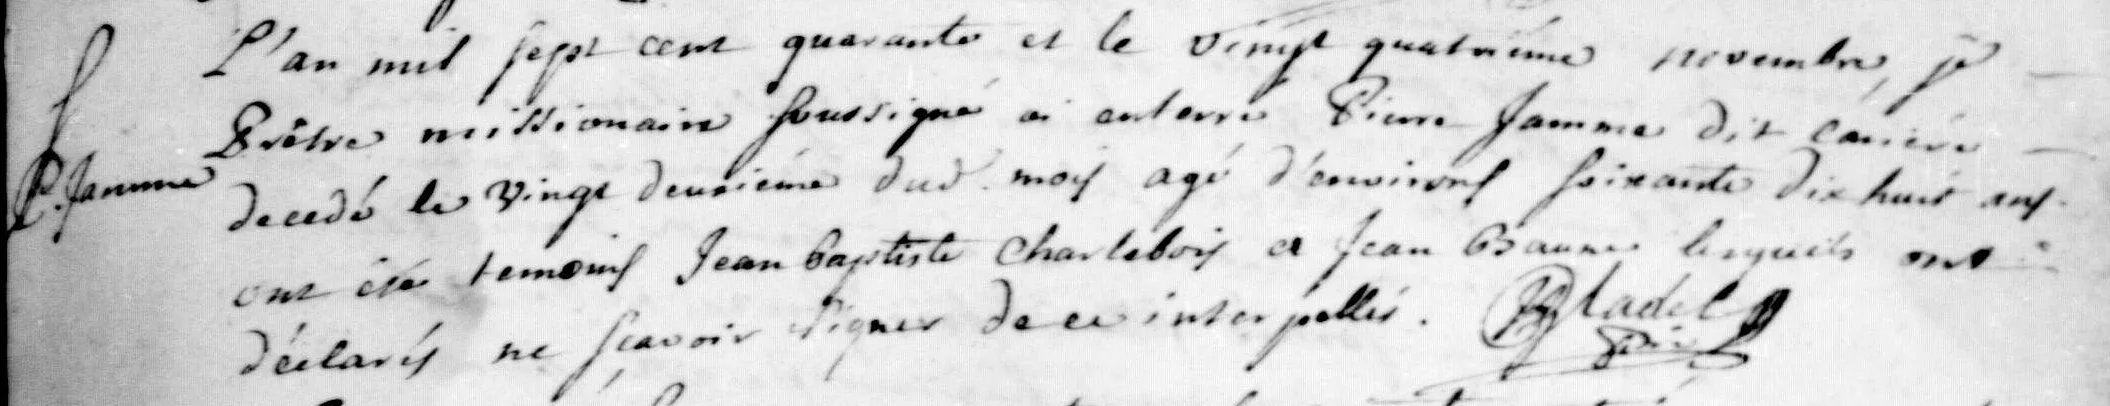 L'an mil sept cent quarante et le vingt quatriéme novembre, je
Prêtre missionaire soussigné ai enterré Pierre Jamme dit Cariéré
P. Jamme
decedé le vingt deuxiéme dud. mois agé d'environs soixante dix huit ans.
ont été temoins Jean baptiste charlebois et Jean Baune lesquels ont
déclarés ne sçavoir signer de ce interpellés.